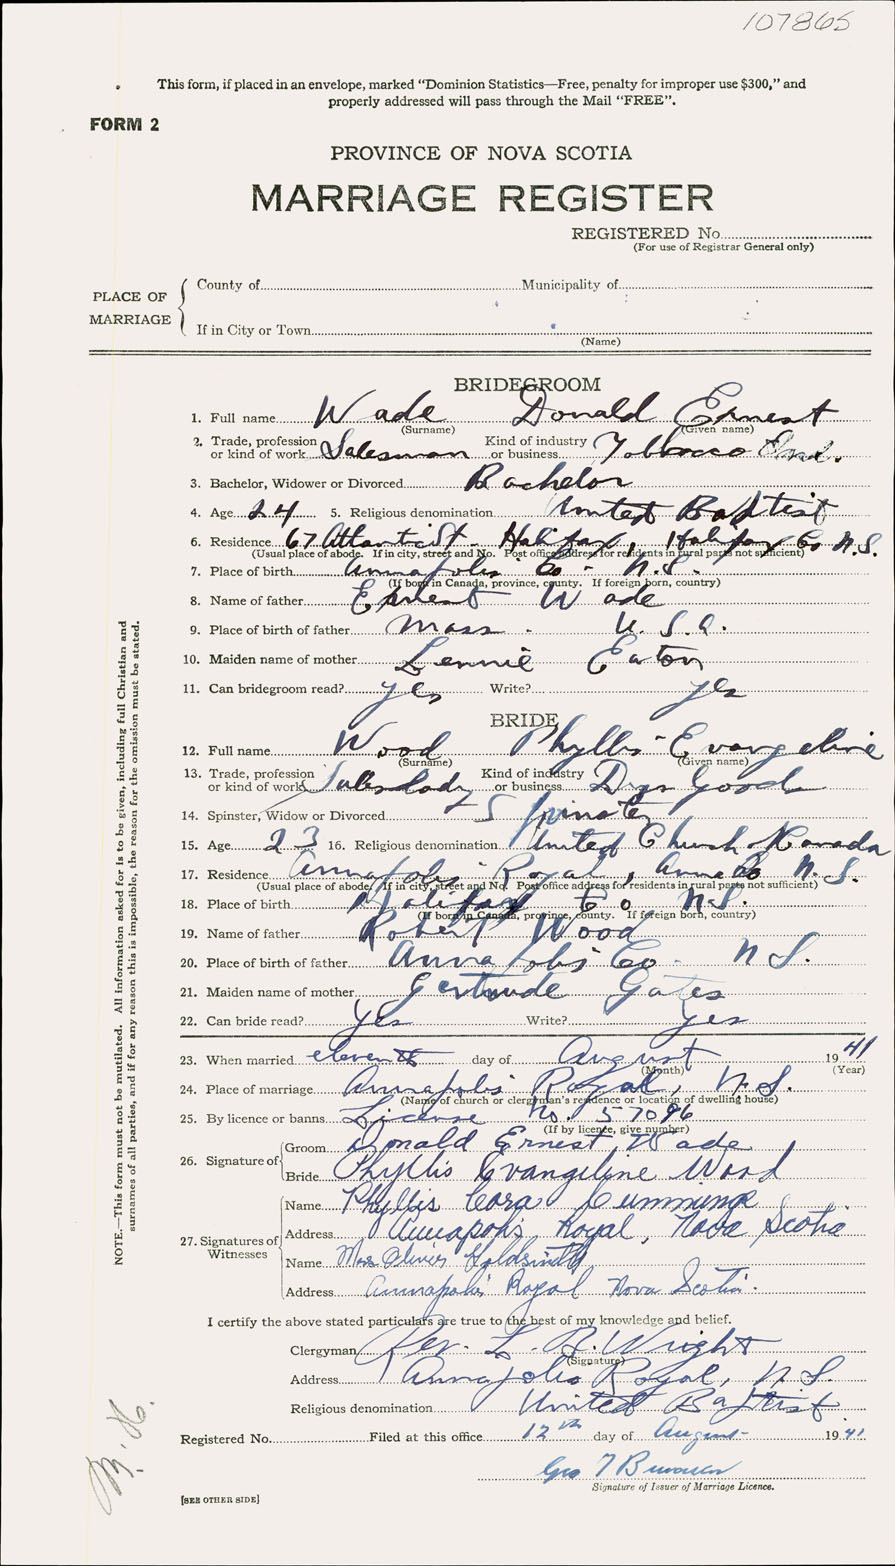 107865
This form, if placed in an envelope, marked "Dominion Statistics—Free, penalty for improper use $300," and
properly addressed will pass through the Mail "FREE".
FORM 2
PROVINCE OF NOVA SCOTIA
MARRIAGE REGISTER
REGISTERED No.
(For use of Registrar General only)
PLACE OF MARRIAGE
County of Municipality of
If in City or Town
(Name)
BRIDEGROOM
1. Full name Wade Donald Ernest
(Surname) (Given name)
2. Trade, profession or kind of work Salesman Kind of industry or business Tobacco
3. Bachelor, Widower or Divorced Bachelor
4. Age 24 5. Religious denomination United Baptist
6. Residence 67 Atlantic St. Halifax, Halifax Co N.S.
(Usual place of abode. If in city, street and No. Post office address for residents in rural parts not sufficient)
7. Place of birth Annapolis Co. N.S.
(If born in Canada, province, county. If foreign born, country)
8. Name of father Ernest Wade
9. Place of birth of father Mass. U.S.A.
10. Maiden name of mother Lennie Eaton
11. Can bridegroom read? yes Write? yes
BRIDE
12. Full name Wood Phyllis Evangeline
(Surname) (Given name)
13. Trade, profession or kind of work Saleslady Kind of industry or business Drys Goods
14. Spinster, Widow or Divorced Spinster
15. Age 23 16. Religious denomination United Church of Canada
17. Residence Annapolis Royal, Anna Co N.S.
(Usual place of abode. If in city, street and No. Post office address for residents in rural parts not sufficient)
18. Place of birth Halifax Co N.S.
(If born in Canada, province, county. If foreign born, country)
19. Name of father Robert Wood
20. Place of birth of father Annapolis Co. N.S.
21. Maiden name of mother Gertrude Gates
22. Can bride read? yes Write? yes
23. When married eleventh day of August 1941
(Month) (Year)
24. Place of marriage Annapolis Royal, N.S.
(Name of church or clergyman's residence or location of dwelling house)
25. By licence or banns License No. 57096
(If by licence, give number)
26. Signature of
Groom Donald Ernest Wade
Bride Phyllis Evangeline Wood
27. Signatures of Witnesses
Name Phyllis Cora Cummings
Address Annapolis Royal, Nova Scotia
Name Mrs Oliver Goldsmith
Address Annapolis Royal Nova Scotia.
I certify the above stated particulars are true to the best of my knowledge and belief.
Clergyman Rev. L. B. Wright
(Signature)
Address Annapolis Royal, N.S.
Religious denomination United Baptist
Registered No. Filed at this office 12th day of August 1941
Geo T
Signature of Issuer of Marriage Licence.
[SEE OTHER SIDE]
NOTE.—This form must not be mutilated. All information asked for is to be given, including full Christian and
surnames of all parties, and if for any reason this is impossible, the reason for the omission must be stated.